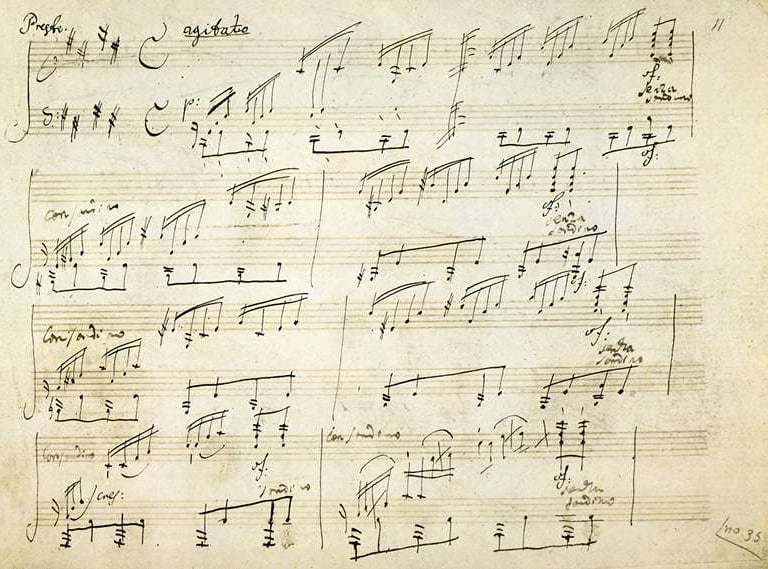 Presto. agitato 11
p:
sf:
senza
sordino
sf:
Con sordino
sf:
senza
sordino
sf:
Con sordino
sf:
senza
sordino
Con sordino Con sordino
cres:
sf:
sordino
sf:
senza
sordino
no. 35